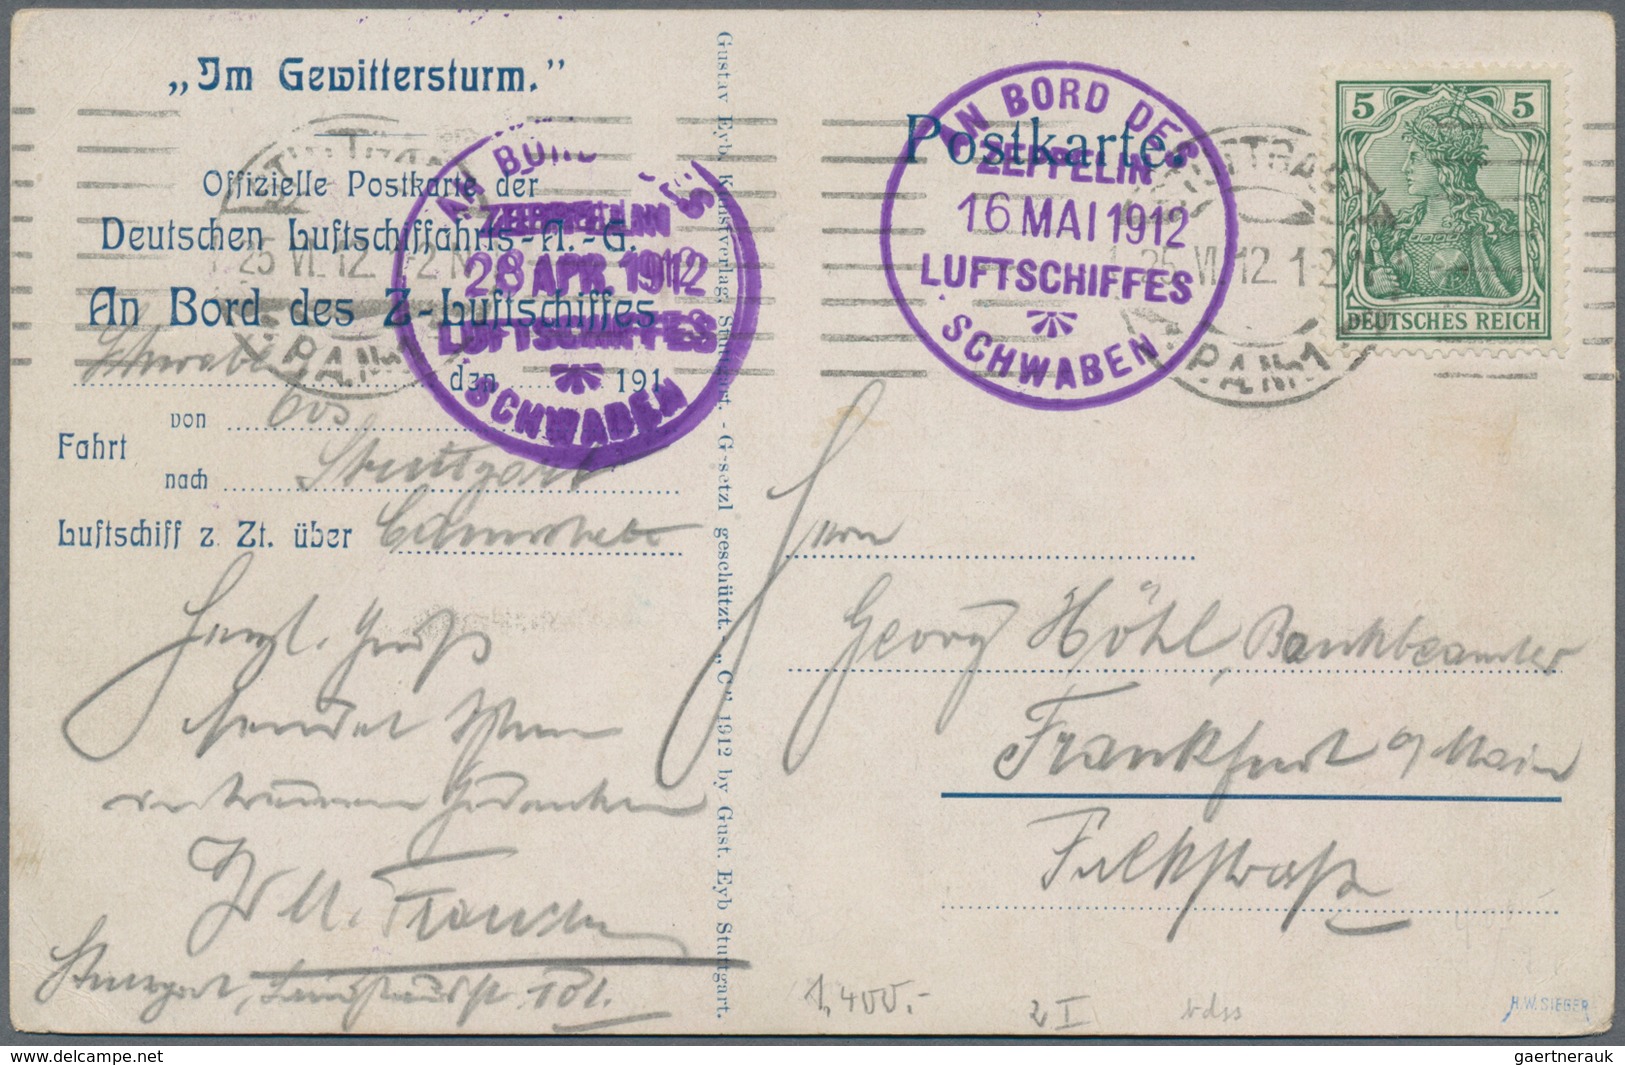 „Im Gewittersturm.”
Offizielle Postkarte der
Deutschen Luftschiffahrts-A.-G.
An Bord des Z-Luftschiffes
Schwaben
den 191
Fahrt
von Oos
nach Stuttgart
Luftschiff z. Zt. über Cannstatt
Herzl. Gruß
sendet Ihnen
Stuttgart,
AN BORD DES
ZEPPELIN
28 APR. 1912
LUFTSCHIFFES
SCHWABEN
Gustav Eyb, Kunstverlag, Stuttgart. - Gesetzl geschützt. - „C” 1912 by Gust. Eyb Stuttgart.
Postkarte.
AN BORD DES
ZEPPELIN
16 MAI 1912
LUFTSCHIFFES
SCHWABEN
STUTTGART
25 VI 12 1-2 N
P.A.Nr.1
5 5
DEUTSCHES REICH
Herrn
Georg Höhl, Bankbeamter
Frankfurt a/Main
Falkstraße
1,400.-
2 I
H.W. SIEGER
www.delcampe.net
gaertnerauk